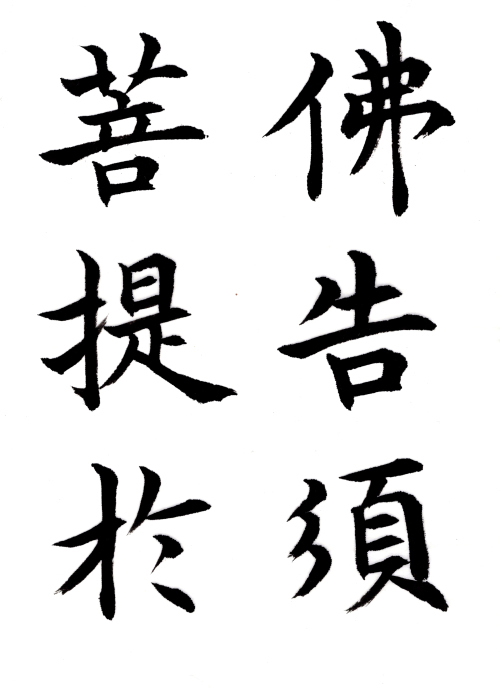 佛告須
菩提於